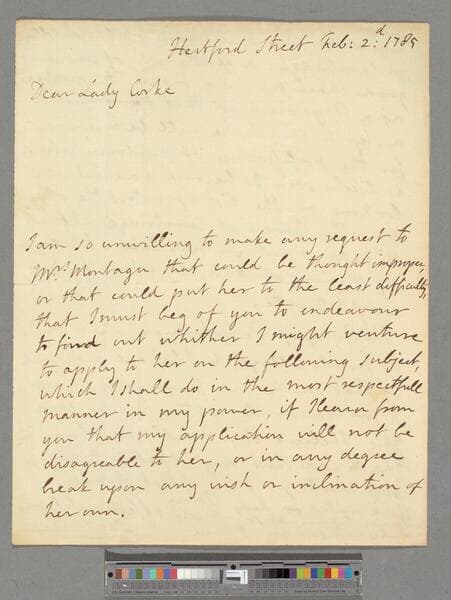 Hertford Street Feb: 2:d 1785
Dear Lady Corke
I am so unwilling to make any request to
Mrs Montagu that could be thought improper,
or that could put her to the least difficulty,
that I must beg of you to endeavour
to find out whither I might venture
to apply to her on the following subject,
which I shall do in the most respectfull
manner in my power, if I learn from
you that my application will not be
disagreable to her, or in any degree
break upon any wish or inclination of
her own.